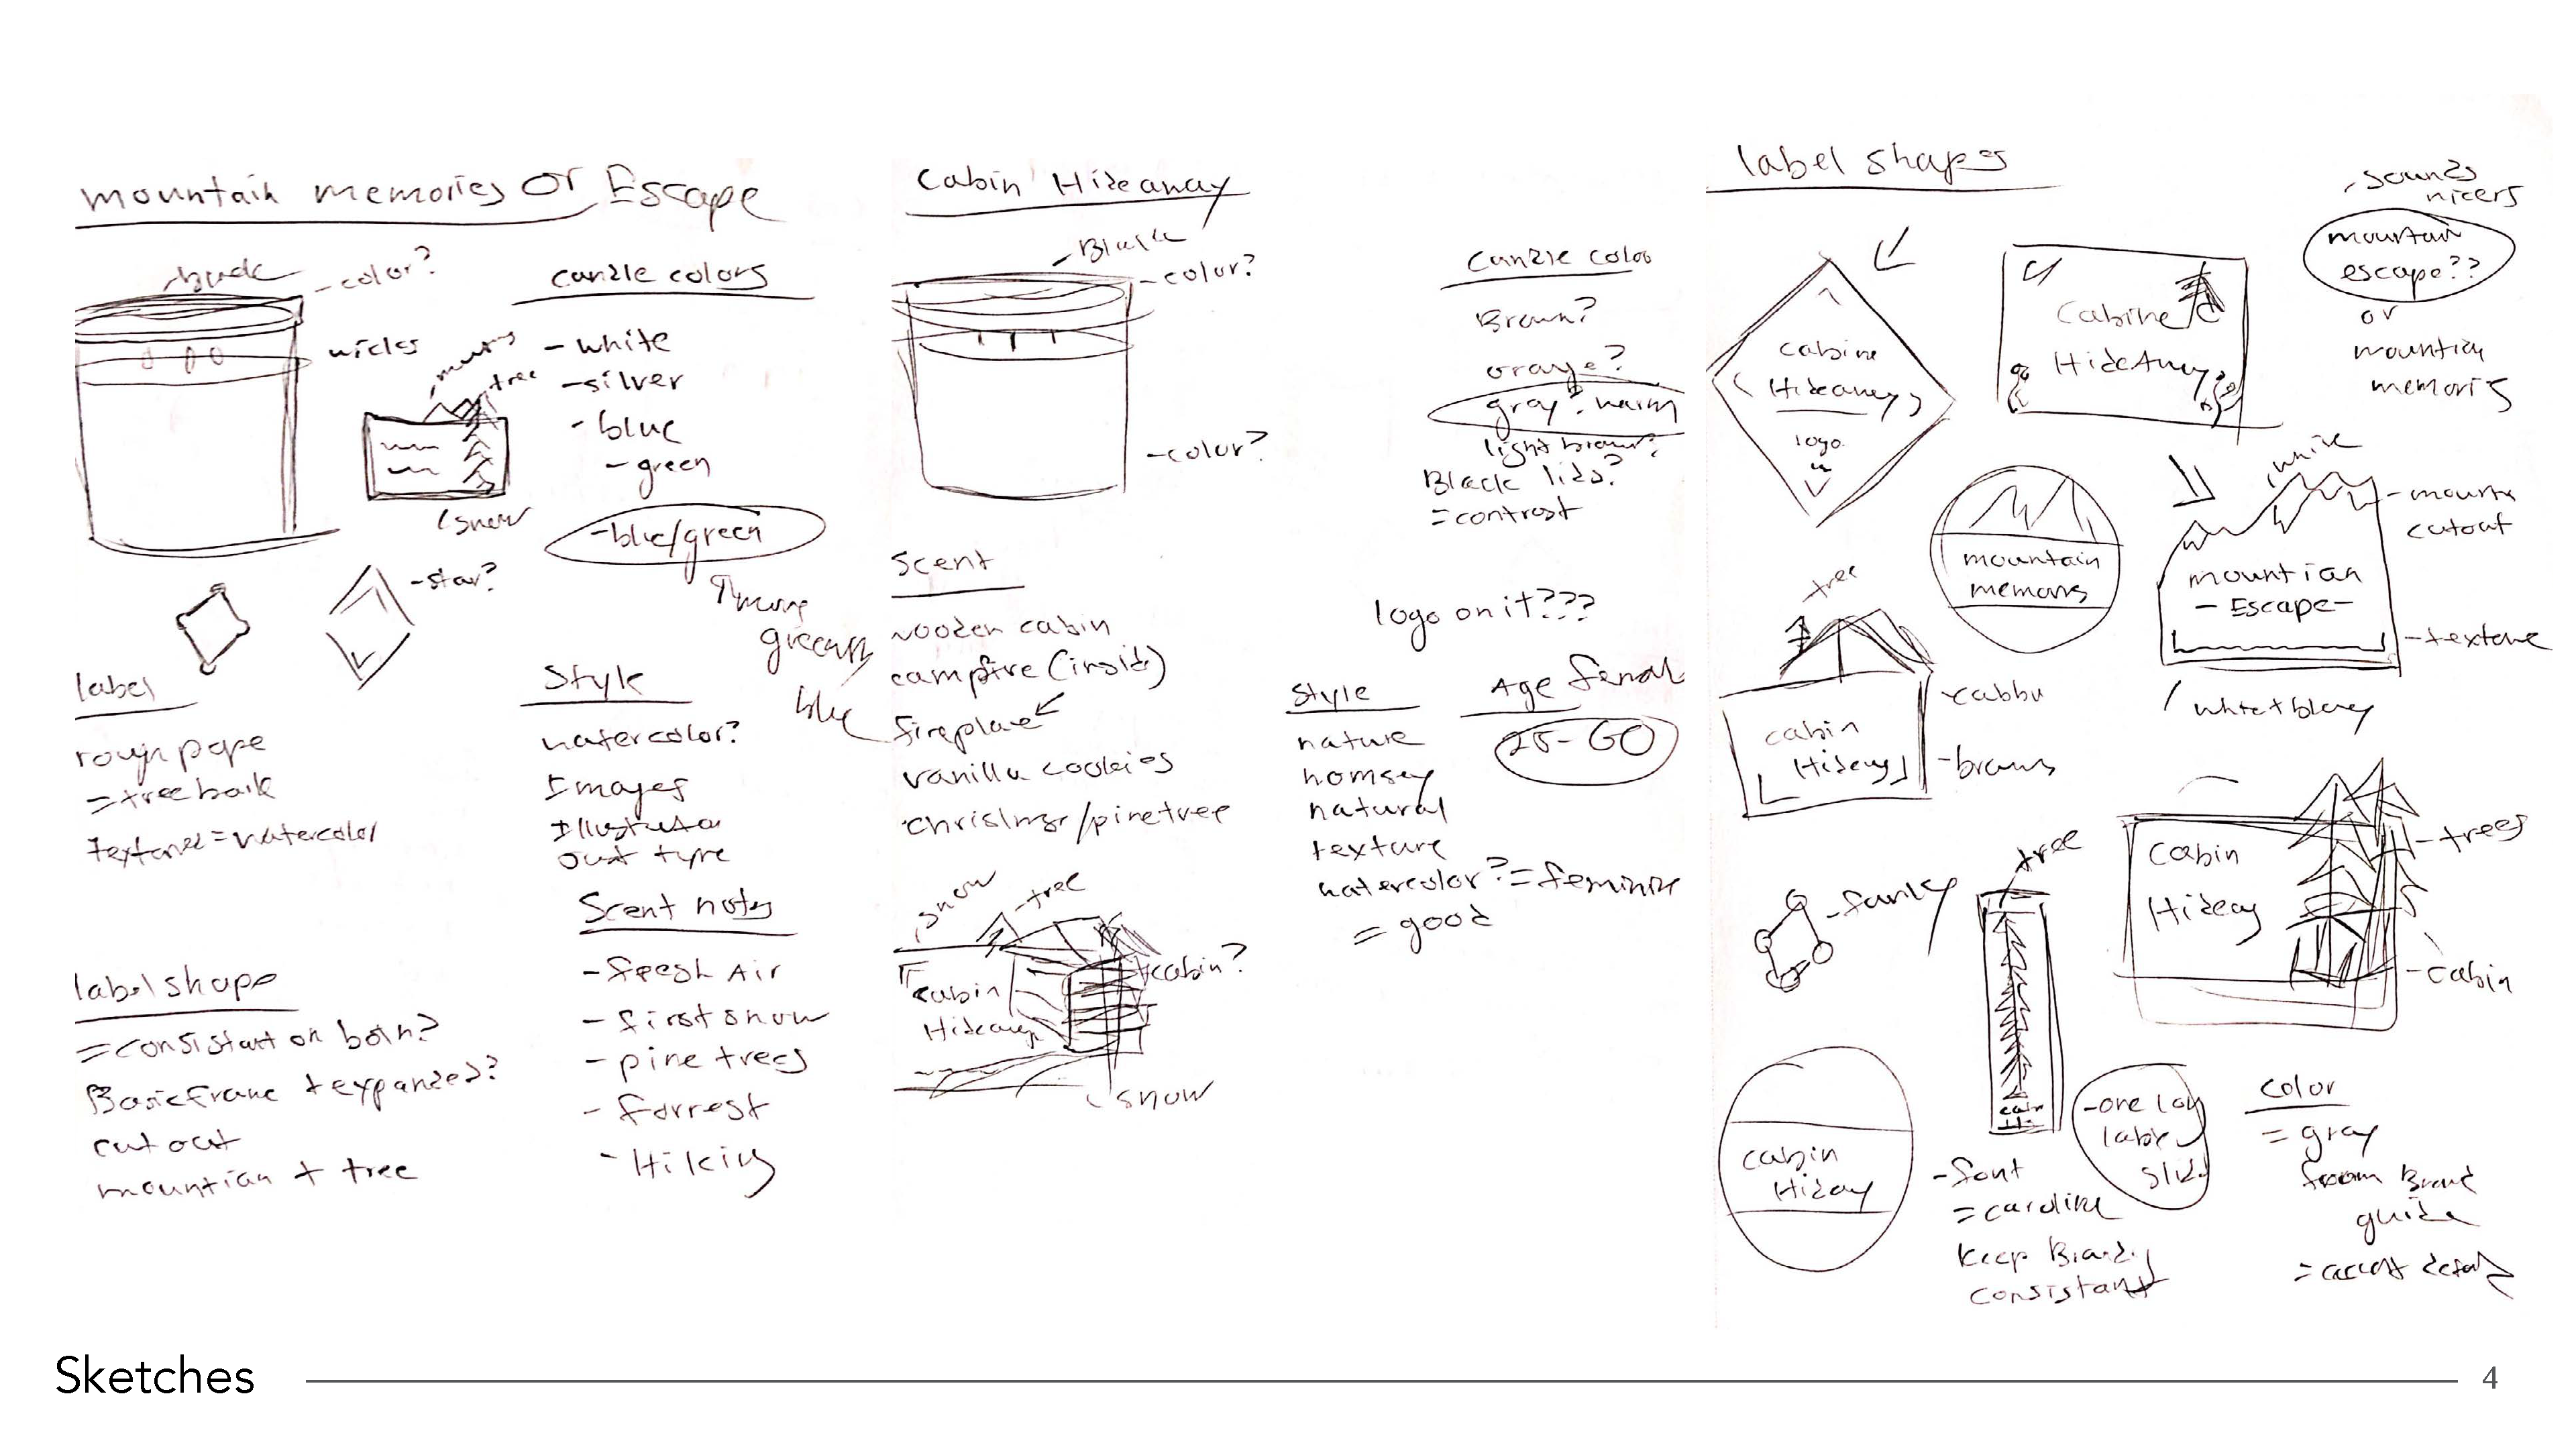 mountain memories or Escape
- color?
wicks
tree
(snow
- star?
candle colors
- white
- silver
- blue
- green
- blue/green
more
blue
label
= tree bark
= watercolor
label shape
= consistant on both?
Basic frame + expanded?
cut out
mountian + tree
Style
watercolor?
Images
Scent notes
- fresh Air
- first snow
- pine trees
- forrest
- Hiking
Cabin Hideaway
- Black
- color?
- color?
Scent
wooden cabin
campfire (inside)
fireplace
vanilla cookies
/pinetree
snow
- tree
cabin?
cabin
Hideaway
snow
Candle color
Brown?
orange?
gray? warm
light brown?
Black lids?
= contrast
logo on it???
Style
nature
homsey
natural
texture
watercolor? = feminine
= good
Age female
25-60
label shapes
cabine
Hideaway
logo
Cabine
HideAway
- sounds
nicers
mountain
escape??
or
mountian
memoris
mountain
white
cutout
mountian
- Escape -
- texture
tree
cabin
Hideaway
- brown
- fancy
tree
Cabin
Hideay
- trees
- cabin
cabin
Hiday
- font
Keep Brand
consistant
- one long
label
color
= gray
from Brand
guide
Sketches
4